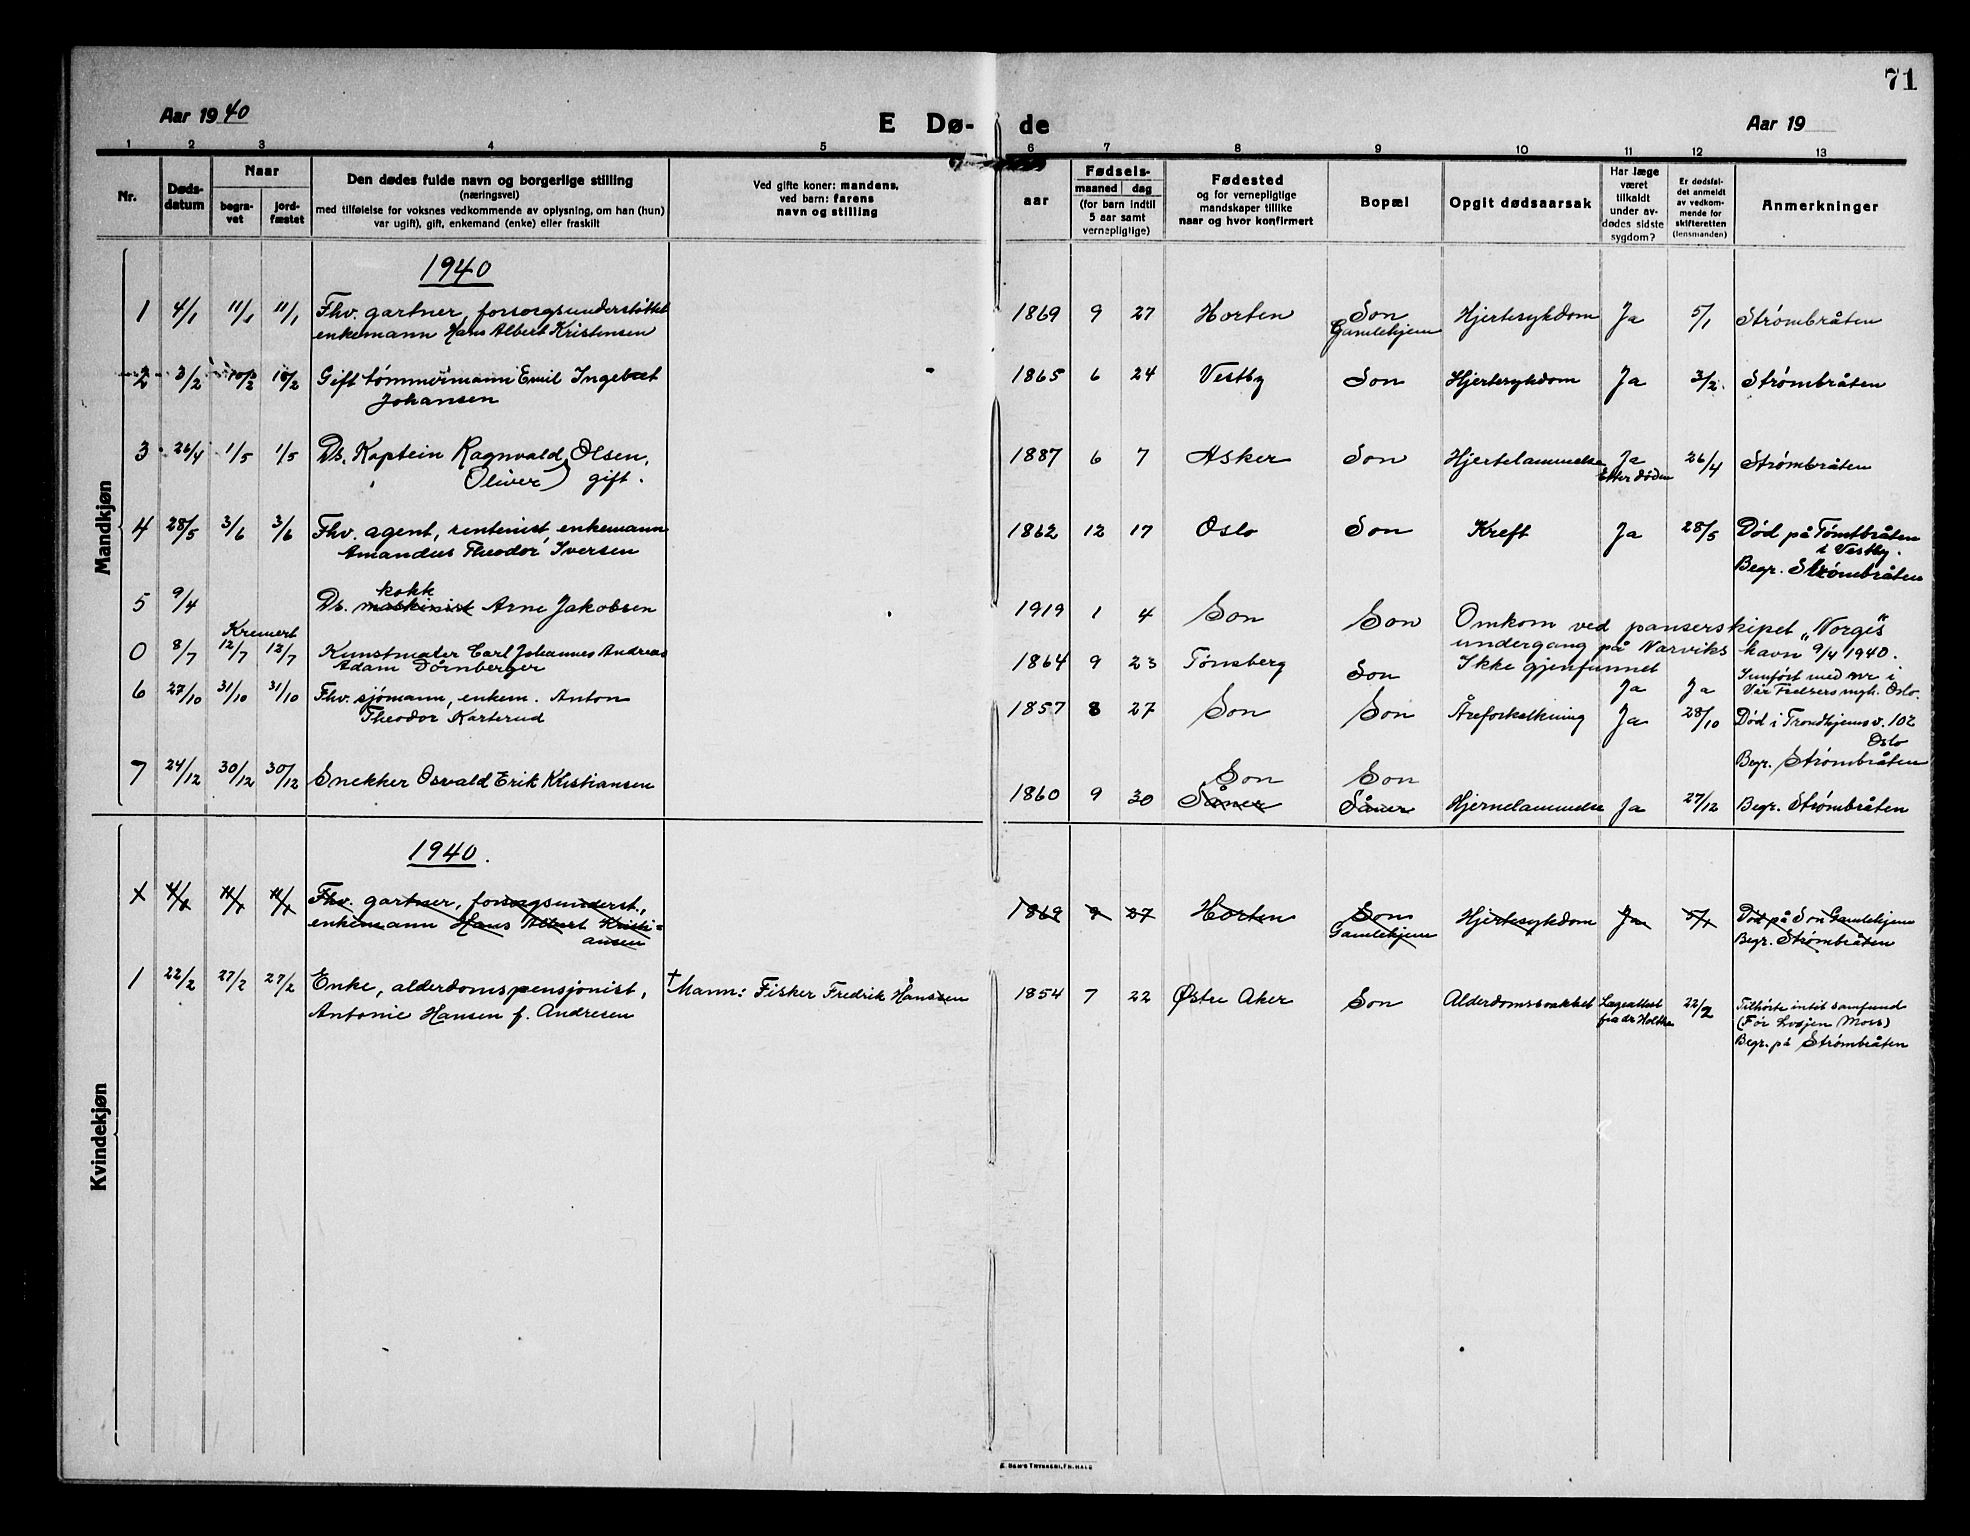 71
Aar 1940
E Dø- de
Aar 19
1 2 3 4 5 6 7 8 9 10 11 12 13
Nr.
Døds-
datum
Naar
begra-
vet
jord-
fæstet
Den dødes fulde navn og borgerlige stilling
(næringsvei)
med tilføielse for voksnes vedkommende av oplysning, om han (hun)
var ugift), gift, enkemand (enke) eller fraskilt
Ved gifte koner: mandens,
ved barn: farens
navn og stilling
aar
Fødsels-
maaned dag
(for barn indtil
5 aar samt
vernepligtige)
Fødested
og for vernepligtige
mandskaper tillike
naar og hvor konfirmert
Bopæl
Opgit dødsaarsak
Har læge
været
tilkaldt
under av-
dødes sidste
sygdom?
Er dødsfal-
det anmeldt
av vedkom-
mende for
skifteretten
(lensmanden)
Anmerkninger
Mandkjøn
1940
1 4/1 11/1 11/1 Fhv. gartner, forsorgsunderstøttet 1869 9 27 Horten Son Hjertesykdom Ja 5/1 Strømbråten
enkemann Hans Albert Kristensen Gamlehjem
2 3/2 10/2 10/2 Gift tømmermann Emil Ingebret 1865 6 24 Vestby Son Hjertesykdom Ja 3/2 Strømbråten
Johansen
3 26/4 1/5 1/5 Ds. Kaptein Ragnvald Olsen, 1887 6 7 Asker Son Hjertelammelse Ja 26/4 Strømbråten
Oliver) gift. Etter døden
4 28/5 3/6 3/6 Fhv. agent, rentenist, enkemann 1862 12 17 Oslo Son Kreft Ja 28/5 Død på Tømtbråten
Amandus Theodor Iversen i Vestby.
Begr. Strømbråten
kokk
5 9/4 Ds. maskinist Arne Jakobsen 1919 1 4 Son Son Omkom ved panserskipet "Norges"
undergang på Narviks havn 9/4 1940.
Ikke gjenfunnet
Kremert
0 8/7 12/7 12/7 Kunstmaler Carl Johannes Andreas 1864 9 23 Tønsberg Son Ja Ja
Adam Dørnberger
Innført med nr i
Vår Frelsers mgh. Oslo.
6 27/10 31/10 31/10 Fhv. sjømann, enkem. Anton 1857 8 27 Son Son Åreforkalkning Ja 28/10 Død i Trondhjemsv. 102
Theodor Karterud Oslo
Begr. Strømbråten
7 24/12 30/12 30/12 Snekker Osvald Erik Kristiansen Son Son
1860 9 30 Såner Såner Hjernelammelse Ja 27/12 Begr. Strømbråten
Kvindekjøn
1940.
4/1 11/1 11/1 Fhv. gartner, forsorgsunderst., 1869 9 27 Horten Son Hjertesykdom Ja 5/1 Død på Son Gamlehjem
enkemann Hans Albert Kristi- Gamlehjem Begr. Strømbråten
ansen
1 22/2 27/2 27/2 Enke, alderdomspensjonist, † Mann: Fisker Fredrik Hanssen 1854 7 22 Østre Aker Son Alderdomssvakhet Lægeattest 22/2 Tilhørte intit samfund
Antonie Hansen f. Andresen fra dr Holthe (Før Lvøjen Moss)
Begr. på Strømbråten